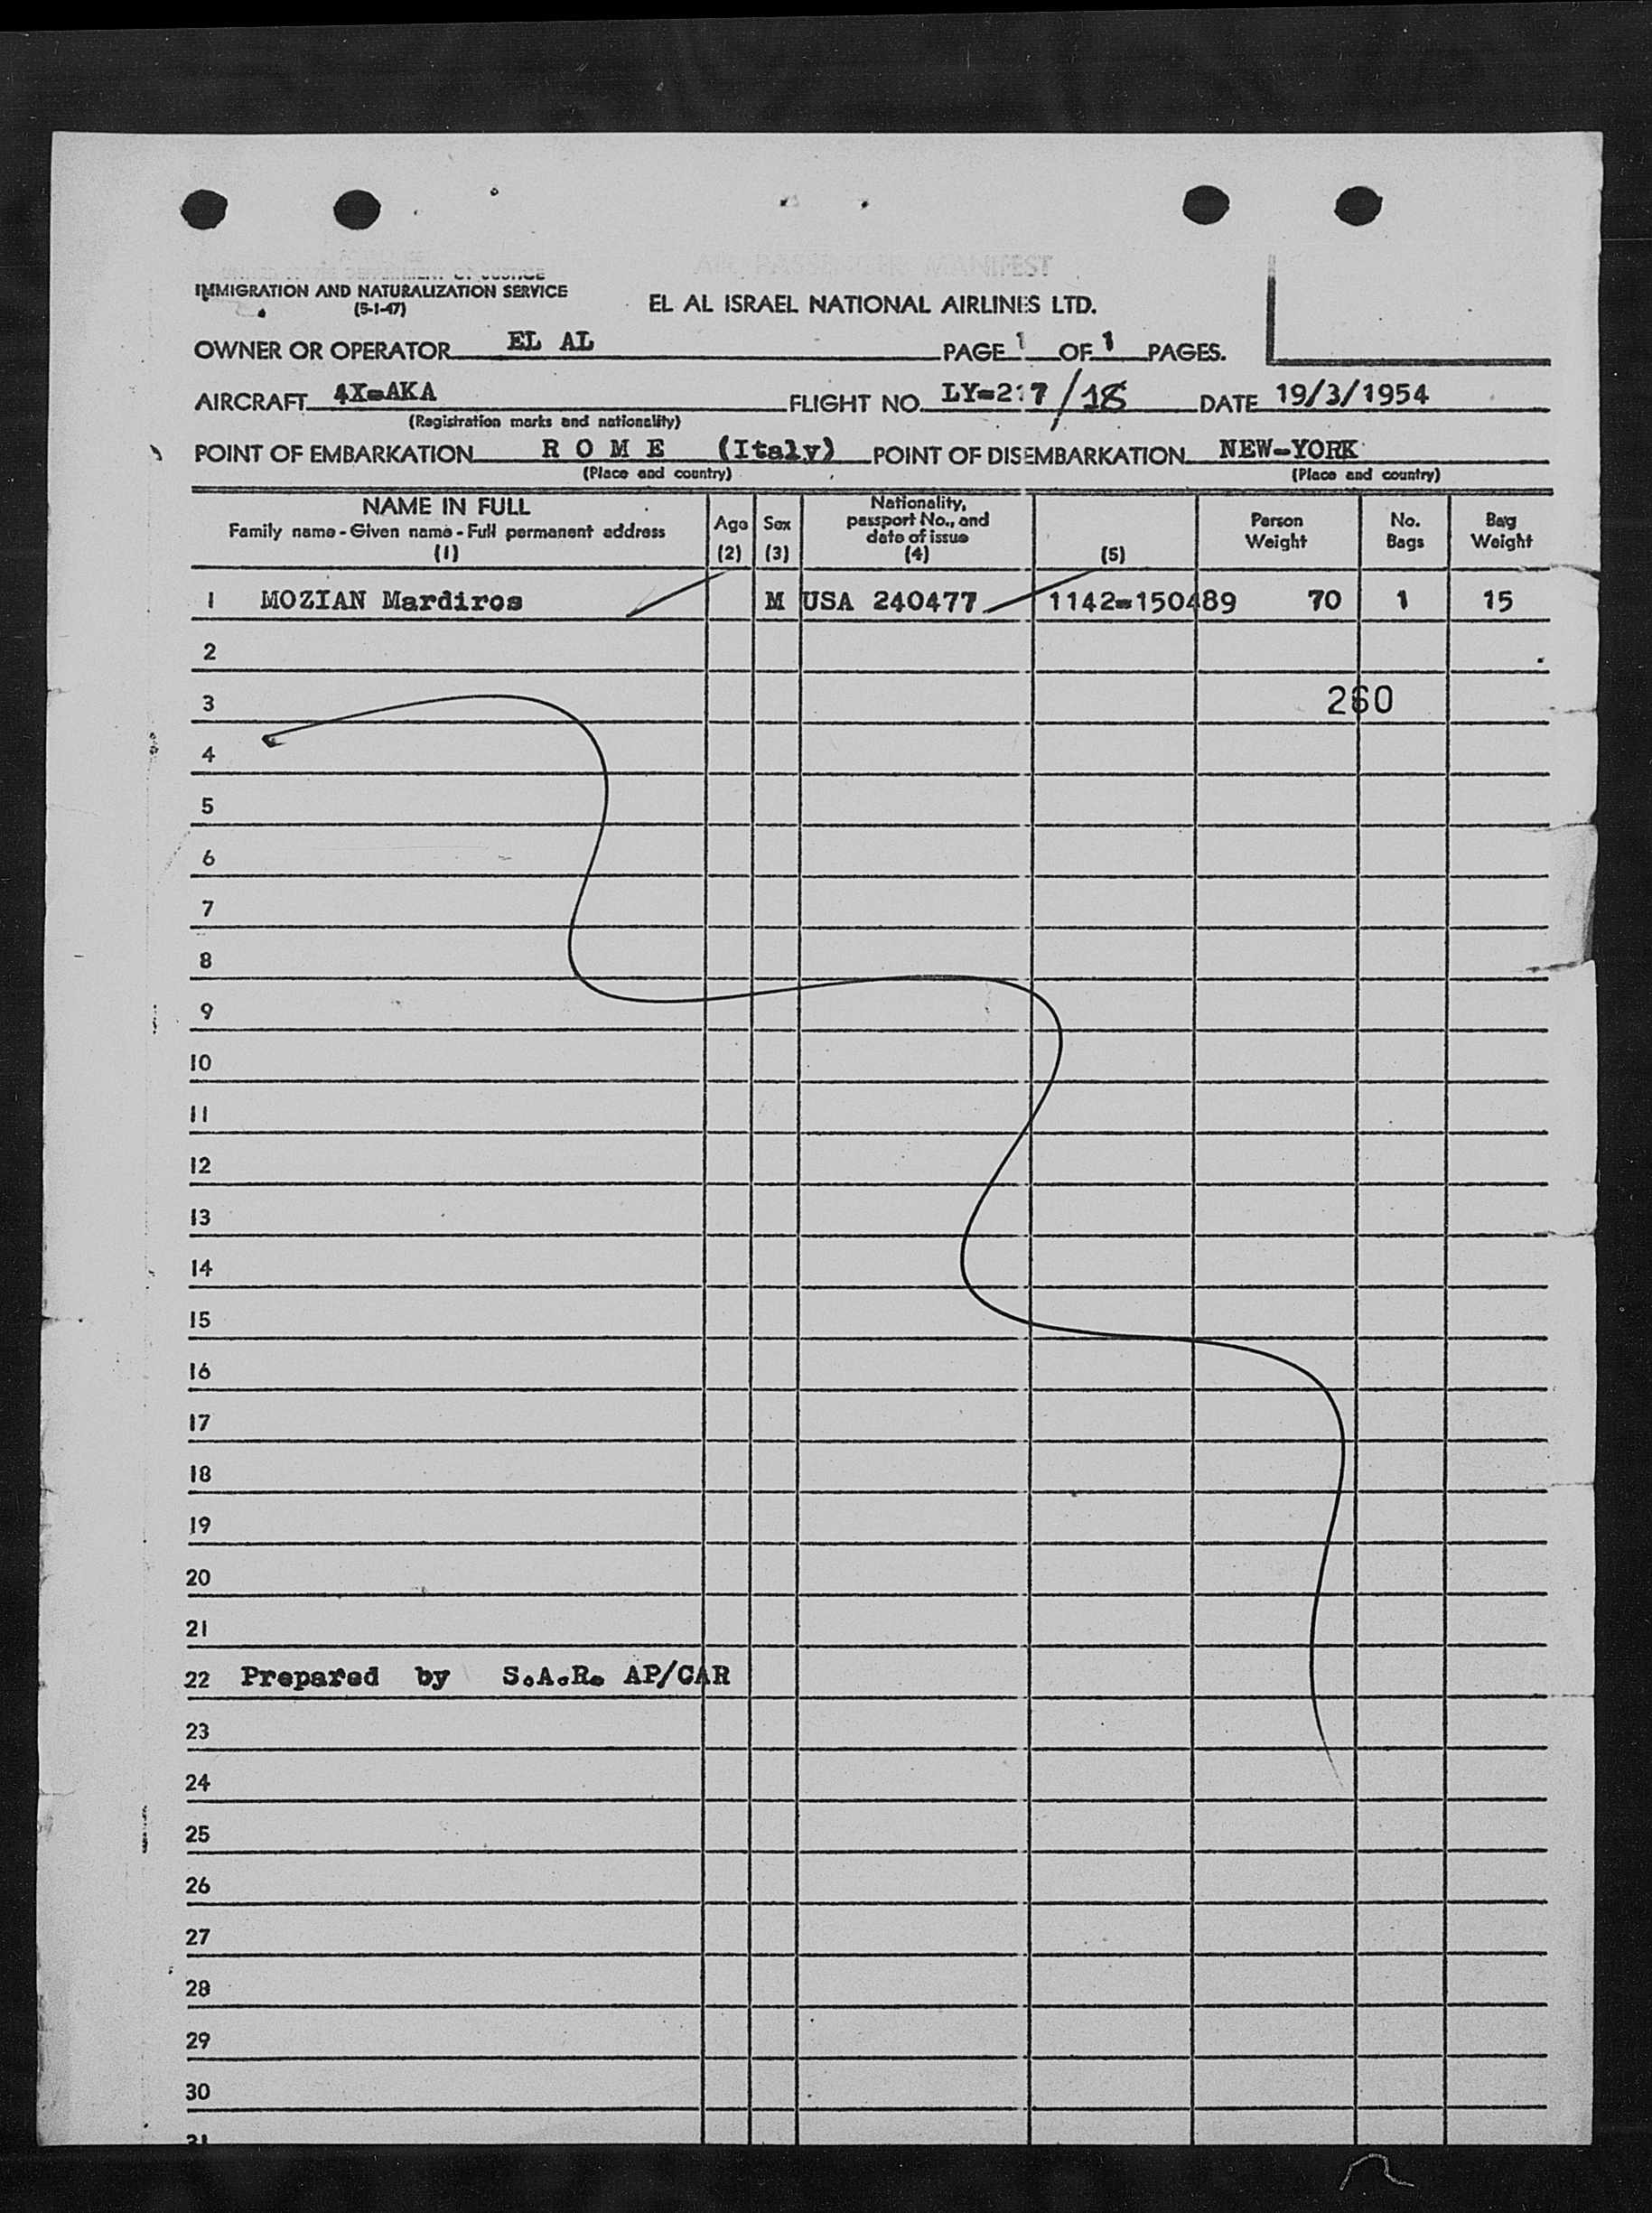 AIR PASSENGER MANIFEST
IMMIGRATION AND NATURALIZATION SERVICE
(5-1-47)
EL AL ISRAEL NATIONAL AIRLINES LTD.
OWNER OR OPERATOR EL AL PAGE 1 OF 1 PAGES.
AIRCRAFT 4X-AKA FLIGHT NO. LY-217/18 DATE 19/3/1954
(Registration marks and nationality)
POINT OF EMBARKATION R O M E (Italy) POINT OF DISEMBARKATION NEW-YORK
(Place and country) (Place and country)
NAME IN FULL
Family name - Given name - Full permanent address
(1)
Age
(2)
Sex
(3)
Nationality,
passport No., and
date of issue
(4)
(5)
Person
Weight
No.
Bags
Bag
Weight
1 MOZIAN Mardiros M USA 240477 1142-150489 70 1 15
2
3 260
4
5
6
7
8
9
10
11
12
13
14
15
16
17
18
19
20
21
22 Prepared by S.A.R. AP/CAR
23
24
25
26
27
28
29
30
31